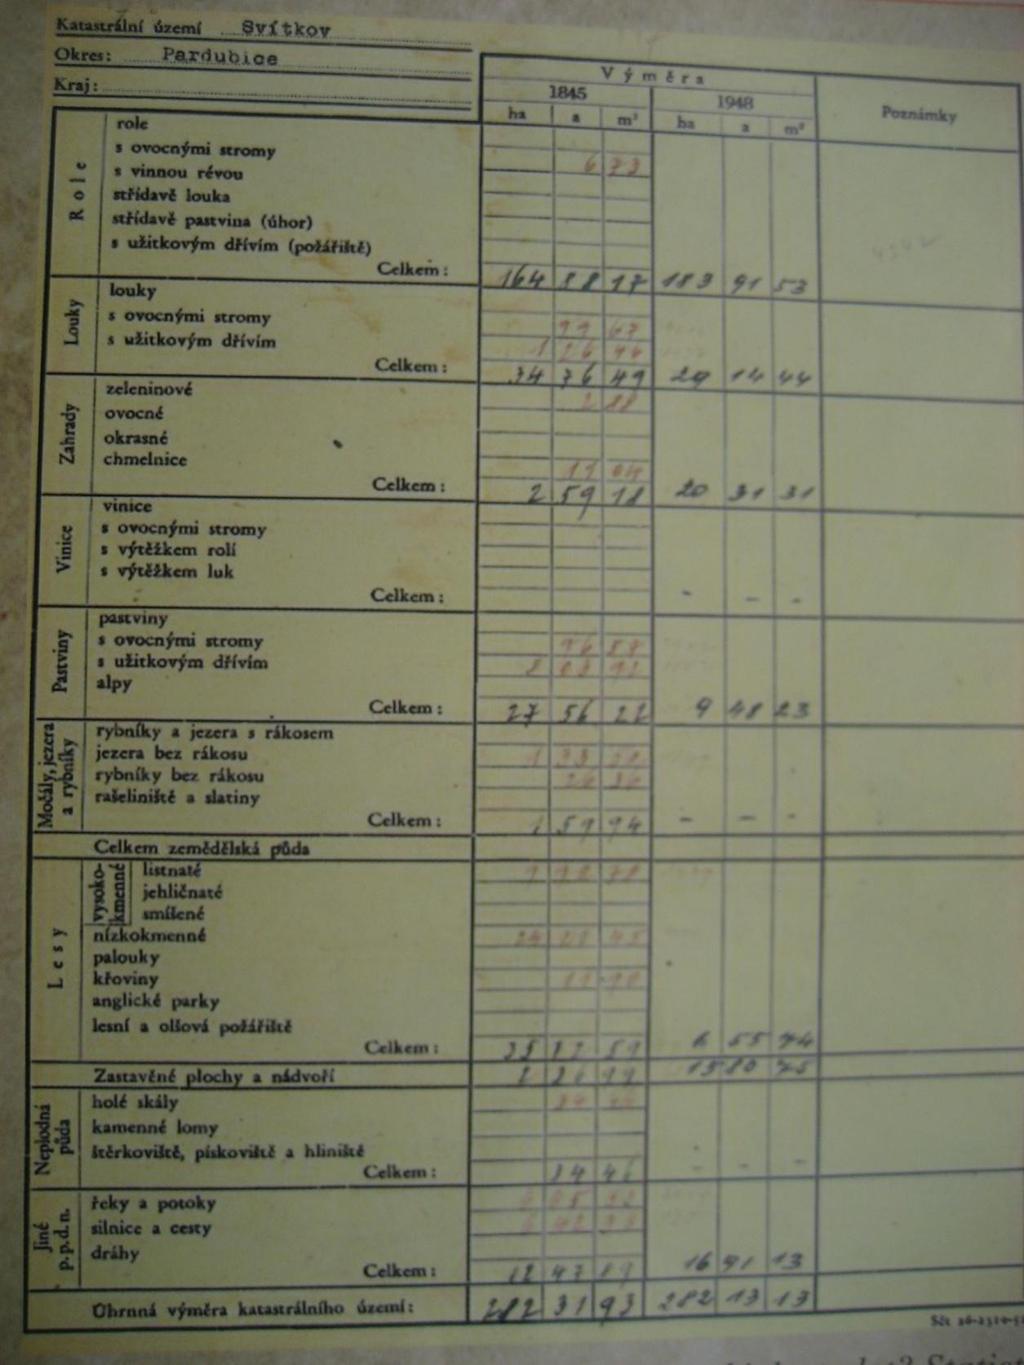 Katastrální území Svítkov
Okres: Pardubice
Kraj:
Výměra
1845 1948 Poznámky
ha a m² ha a m²
Role
role
s ovocnými stromy 6 73
s vinnou révou
střídavě louka
střídavě pastvina (úhor)
s užitkovým dřívím (požářiště)
Celkem: 164 88 17 183 91 53
Louky
louky
s ovocnými stromy 99 67
s užitkovým dřívím 1 26 44
Celkem: 34 76 49 29 14 44
Zahrady
zeleninové 2 88
ovocné
okrasné
chmelnice 19 04
Celkem: 2 59 18 20 31 31
Vinice
vinice
s ovocnými stromy
s výtěžkem rolí
s výtěžkem luk
Celkem: - - -
Pastviny
pastviny
s ovocnými stromy 96 88
s užitkovým dřívím
alpy
Celkem: 27 56 22 9 48 23
Močály, jezera a rybníky
rybníky a jezera s rákosem
jezera bez rákosu 1 33
rybníky bez rákosu 26 36
rašeliniště a slatiny
Celkem: 1 59 94 - - -
Celkem zemědělská půda
Lesy
vysokokmenné
listnaté
jehličnaté
smíšené
nízkokmenné
palouky
křoviny
anglické parky
lesní a olšová požářiště
Celkem: 35 82 59 6 55 74
Zastavěné plochy a nádvoří 2 26 99 15 80 75
Neplodná půda
holé skály
kamenné lomy
štěrkoviště, pískoviště a hliniště
Celkem: 34 46 - - -
Jiné p.p.d.n.
řeky a potoky
silnice a cesty
dráhy
Celkem: 12 47 89 16 91 13
Úhrnná výměra katastrálního území: 282 31 93 282 13 13